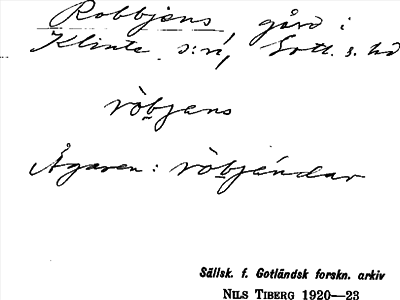 Robbjens, gård i
Klinte s:n, Gotl. s. hd
ròbjens
Ägaren: ròbjéndar
Sällsk. f. Gotländsk forskn. arkiv
NILS TIBERG 1920—23